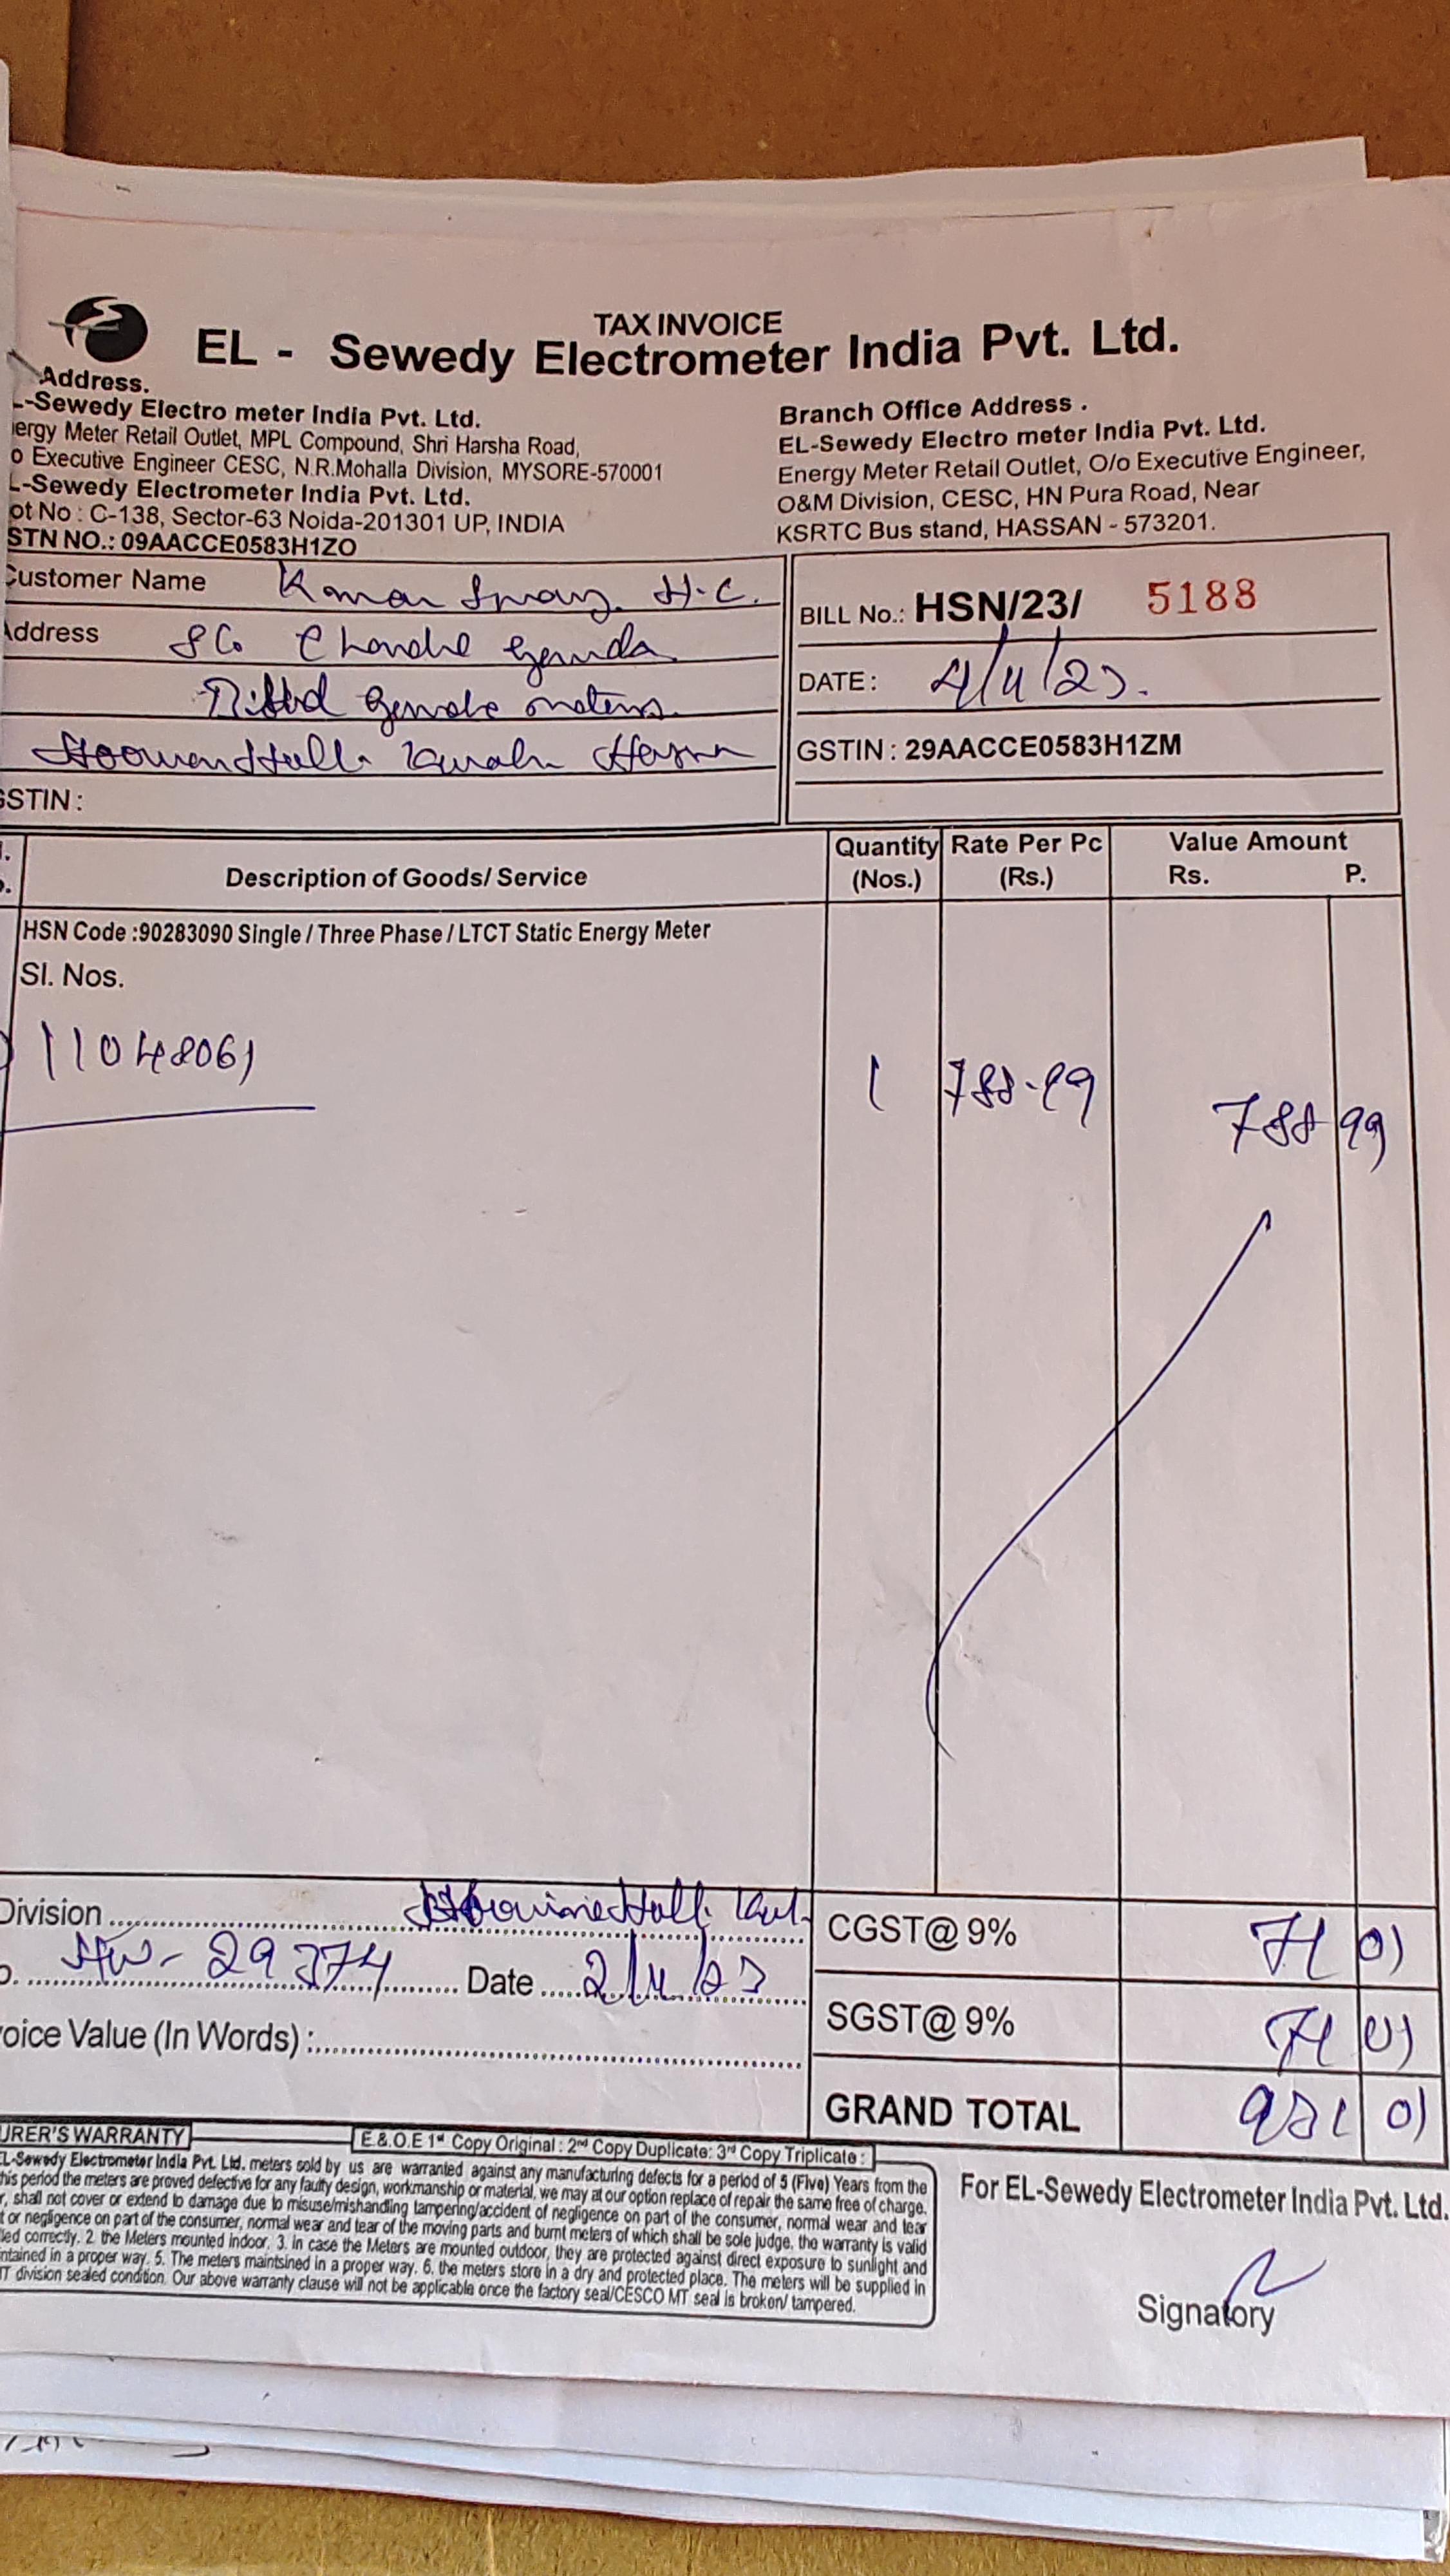 TAX INVOICE
EL - Sewedy Electrometer India Pvt. Ltd.
Address.
-Sewedy Electro meter India Pvt. Ltd.
ergy Meter Retail Outlet, MPL Compound, Shri Harsha Road,
o Executive Engineer CESC, N.R.Mohalla Division, MYSORE-570001
-Sewedy Electrometer India Pvt. Ltd.
ot No : C-138, Sector-63 Noida-201301 UP, INDIA
STN NO.: 09AACCE0583H1ZO
Branch Office Address .
EL-Sewedy Electro meter India Pvt. Ltd.
Energy Meter Retail Outlet, O/o Executive Engineer,
O&M Division, CESC, HN Pura Road, Near
KSRTC Bus stand, HASSAN - 573201.
Customer Name H.C.
Address
GSTIN :
BILL No.: HSN/23/ 5188
DATE : 4/11/23.
GSTIN : 29AACCE0583H1ZM
Description of Goods/ Service
Quantity (Nos.)
Rate Per Pc (Rs.)
Value Amount
Rs. P.
HSN Code :90283090 Single / Three Phase / LTCT Static Energy Meter
Sl. Nos.
11048061
1 788.99 788 99
Division
CGST@ 9% 71 01
Date 2/11/23
SGST@ 9% 71 01
oice Value (In Words) :
GRAND TOTAL 931 01
URER'S WARRANTY
E.& O.E 1st Copy Original : 2nd Copy Duplicate: 3rd Copy Triplicate :
L-Sewedy Electrometer India Pvt. Ltd. meters sold by us are warranted against any manufacturing defects for a period of 5 (Five) Years from the
his period the meters are proved defective for any faulty design, workmanship or material, we may at our option replace of repair the same free of charge.
r, shall not cover or extend to damage due to misuse/mishandling tampering/accident of negligence on part of the consumer, normal wear and tear
t or negligence on part of the consumer, normal wear and tear of the moving parts and burnt meters of which shall be sole judge, the warranty is valid
led correctly. 2. the Meters mounted indoor, 3. In case the Meters are mounted outdoor, they are protected against direct exposure to sunlight and
ntained in a proper way. 5. The meters maintsined in a proper way. 6. the meters store in a dry and protected place. The meters will be supplied in
T division sealed condition. Our above warranty clause will not be applicable once the factory seal/CESCO MT seal is broken/ tampered.
For EL-Sewedy Electrometer India Pvt. Ltd.
Signatory